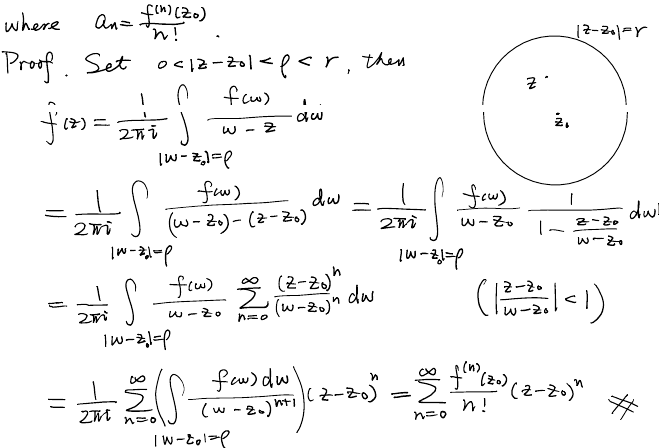 where aₙ = f⁽ⁿ⁾(z₀)/n! .
|z-z₀|=r
Proof. Set 0<|z-z₀|<ρ<r, then
z
z₀
f(z) = 1/(2πi) ∫_{|w-z₀|=ρ} f(w)/(w-z) dw
= 1/(2πi) ∫_{|w-z₀|=ρ} f(w)/((w-z₀)-(z-z₀)) dw = 1/(2πi) ∫_{|w-z₀|=ρ} f(w)/(w-z₀) 1/(1-(z-z₀)/(w-z₀)) dw
= 1/(2πi) ∫_{|w-z₀|=ρ} f(w)/(w-z₀) ∑_{n=0}^{∞} (z-z₀)ⁿ/(w-z₀)ⁿ dw (|(z-z₀)/(w-z₀)|<1)
= 1/(2πi) ∑_{n=0}^{∞} (∫_{|w-z₀|=ρ} f(w)dw/(w-z₀)ⁿ⁺¹)(z-z₀)ⁿ = ∑_{n=0}^{∞} f⁽ⁿ⁾(z₀)/n! (z-z₀)ⁿ #